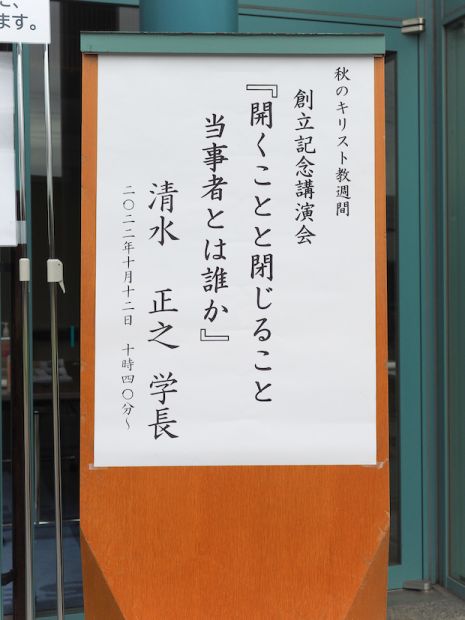 ます。
秋のキリスト教週間
創立記念講演会
『開くことと閉じること
当事者とは誰か』
清水 正之 学長
二〇二二年十月十二日 十時四〇分～